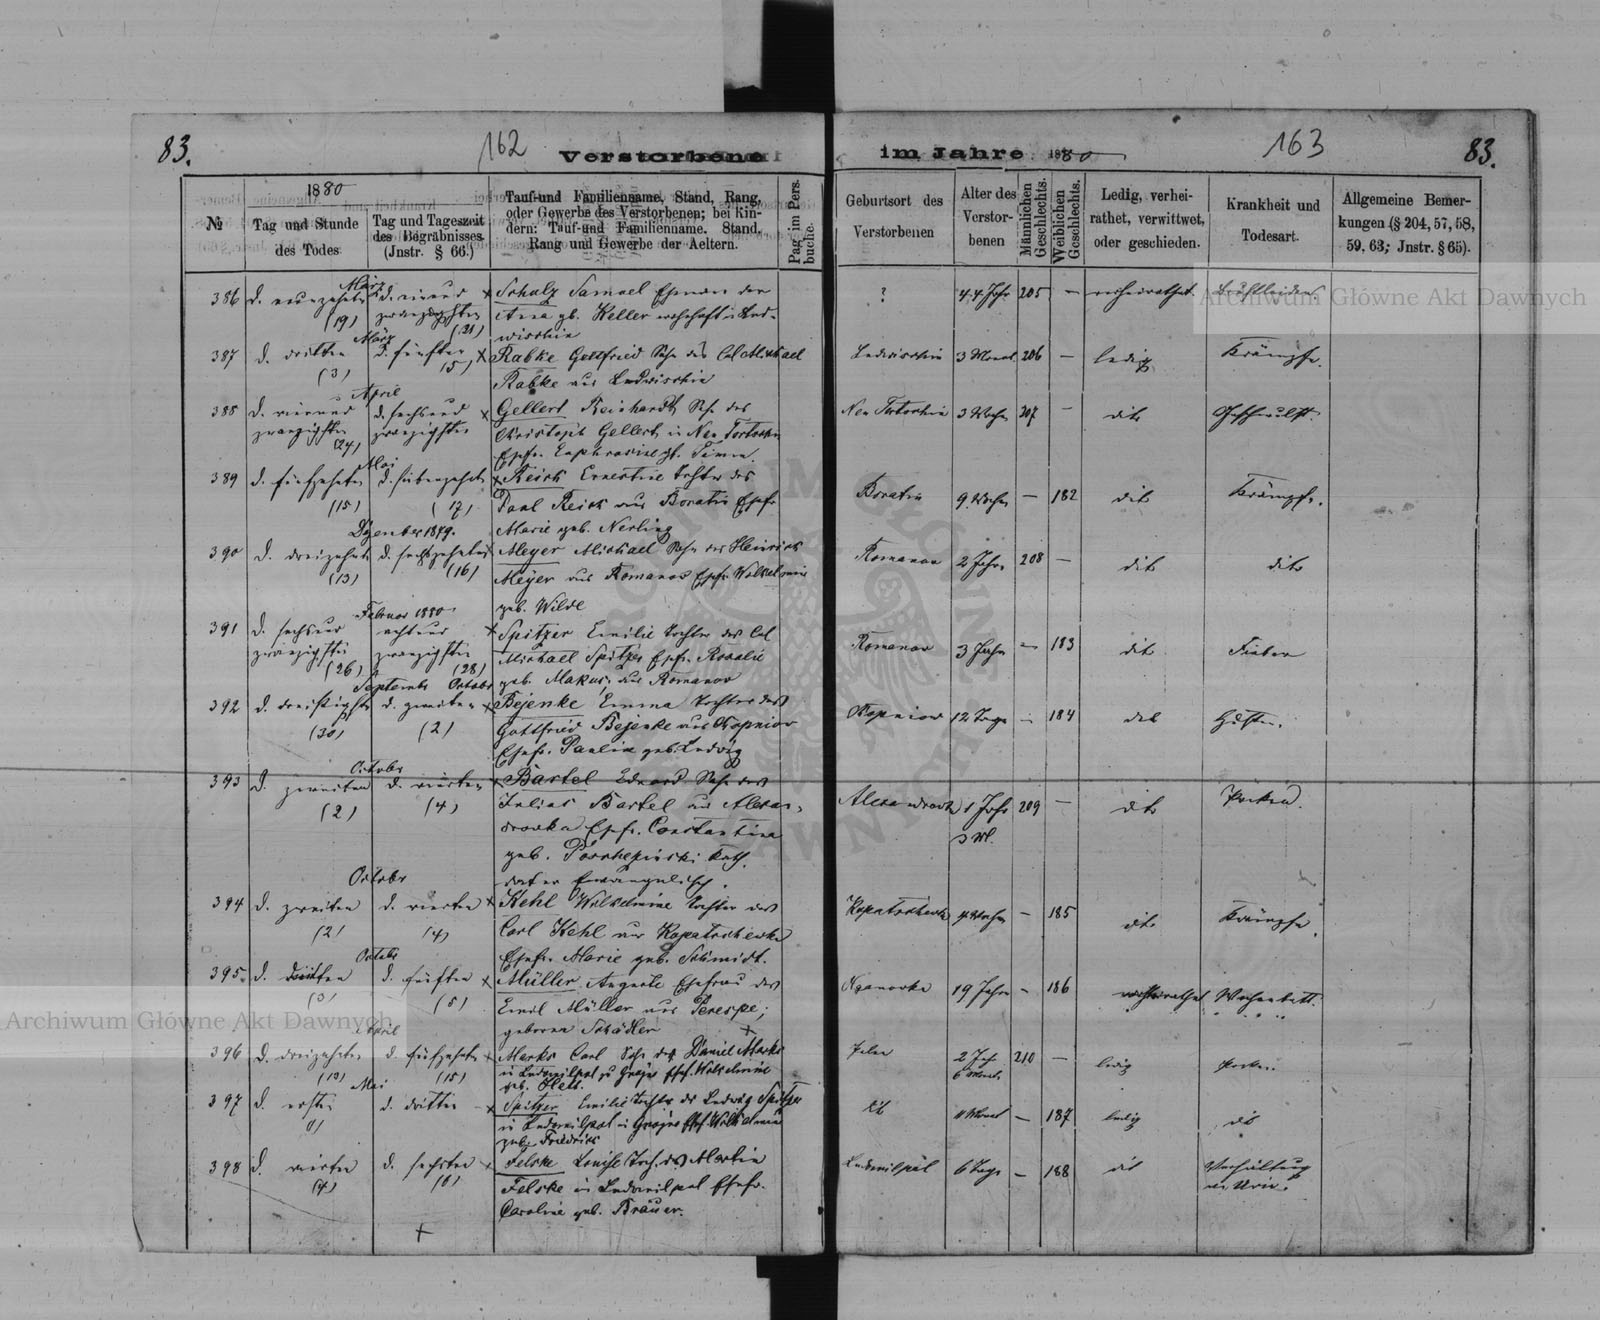 83.
162
Verstorbene
im Jahre 1880
163
83.
1880
№
Tag und Stunde
des Todes
Tag und Tageszeit
des Begräbnisses
(Instr. § 66.)
Tauf-und Familienname, Stand, Rang,
oder Gewerbe des Verstorbenen; bei Kin-
dern: Tauf-und Familienname. Stand,
Rang und Gewerbe der Aeltern.
Pag. im Pers.
buche.
Geburtsort des
Verstorbenen
Alter des
Verstor-
benen
Männlichen
Geschlechts.
Weiblichen
Geschlechts.
Ledig, verhei-
rathet, verwittwet,
oder geschieden.
Krankheit und
Todesart.
Allgemeine Bemer-
kungen (§ 204, 57, 58,
59, 63; Jnstr. § 65).
März
386 d. neunzehnten d. einund Schulz Samuel Ehemann der ? 44 Jahr 205 — verheirathet
(19) zwanzigsten (21) Anna gb. Keller wohnhaft in Lud-
wischin
März
387 d. dritten d. fünften Rabke Gottfried Sohn des Col. Michael Ludwischin 3 Monat 206 — ledig Krämpfe.
(3) (5) Rabke aus Ludwischin
April
388 d. vierund d. sechsund Gellert Reinhardt Sohn des 3 Woch. 207 — dito Geschwulst.
zwanzigsten zwanzigsten Christoph Gellert in Neu
(24) Ehefr. Euphrosine gb. Timm.
Mai
389 d. fünfzehnten d. siebenzehnten Reich Ernestine Tochter des Boratin 9 Woch. — 182 dito Krämpfe.
(15) (17) Paul Reich aus Boratin Ehefr.
Marie geb. Nerling
Dezember 1879.
390 d. dreizehnten d. sechszehnten Meyer Michael Sohn des Heinrich Romanow 2 Jahr 208 — dito dito
(13) (16) Meyer aus Romanow Ehefr. Wilhelmine
geb. Wilde
Februar 1880
391 d. sechsund achtund Spitzer Emilie Tochter des Col. Romanow 3 Jahr — 183 dito Fieber
zwanzigsten zwanzigsten Michael Spitzer Ehefr. Rosalie
(26) (28) geb. Makus, aus Romanow
September October
392 d. dreißigsten d. zweiten Bejenke Emma Tochter des Kopniow 12 Tage — 184 dito Husten.
(30) (2) Gottfried Bejenke aus Kopniow
Ehefr. Pauline geb. Ludwig
October
393 d. zweiten d. vierten Bartel Eduard Sohn des Alexandrowka 1 Jahr 209 — dito Pocken.
(2) (4) Julius Bartel aus Alexan- 3 M.
drowka Ehefr. Constantina
geb. kath.
Vater Evangelisch.
October
394 d. zweiten d. vierten Kehl Wilhelmine Tochter des Kopatschewka Woch. — 185 dito Krämpfe.
(2) (4) Carl Kehl aus Kopatschewka
Ehefr. Marie geb. Schmidt.
October
395. d. dritten d. fünften Müller Auguste Ehefrau des 19 Jahre — 186 verheirathet Wochenbett.
(3) (5) Emil Müller aus Perespe;
geborene Schädler
April
396 d. dreizehnten d. fünfzehnten Marks Carl Sohn des Daniel Marks 2 Jahr 210 — ledig Pocken.
(13) (15) in Ludwilpol Ehefr. Wilhelmine 6 Monat
geb. Hett.
Mai
397 d. ersten d. dritten Spitzer Emilie Tochter des Ludwig Spitzer Monat — 187 ledig dito
(1) in Ludwilpol Ehefr. Wilhelmine
geb. Friedrich
398 d. vierten d. sechsten Felske Louise Toch. des Martin Ludwilpol 6 Tage — 188 dito Verhaltung
(4) (6) Felske in Ludwilpol Ehefr. Urin.
Caroline geb. Bräuer.
Archiwum Główne Akt Dawnych
Archiwum Główne Akt Dawnych